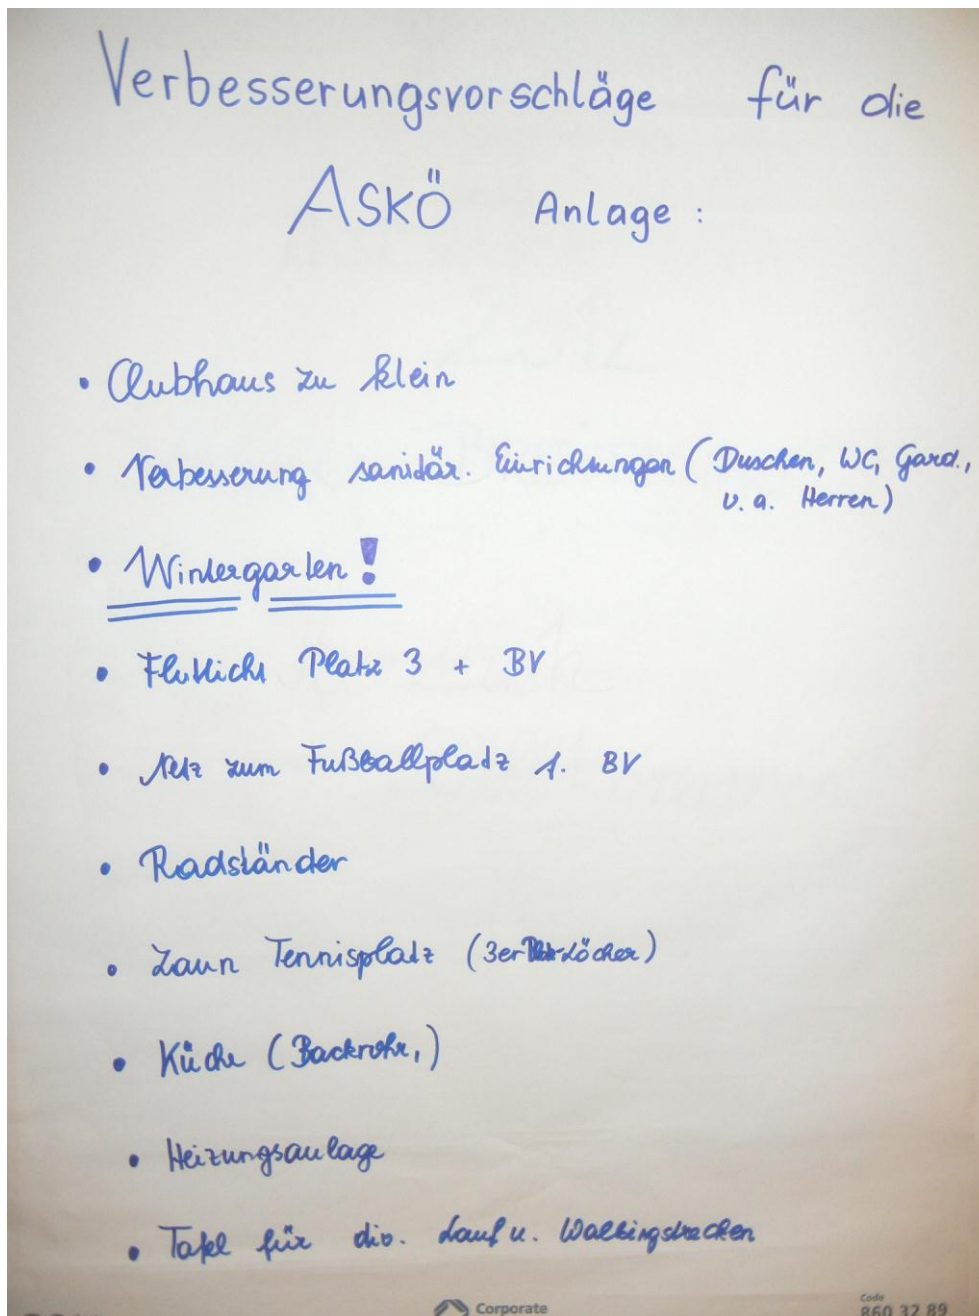 Verbesserungsvorschläge für die
ASKÖ Anlage:
• Clubhaus zu klein
• Verbesserung sanitär. Einrichtungen (Duschen, WC, Gard.,
v. a. Herren)
• Wintergarten!
• Flutlicht Platz 3 + BV
• Netz zum Fußballplatz 1. BV
• Radständer
• Zaun Tennisplatz (3er Löcher)
• Küche (Backrohr,)
• Heizungsanlage
• Tafel für div. Lauf u. Walkingstrecken
Corporate
Code
860 32 89